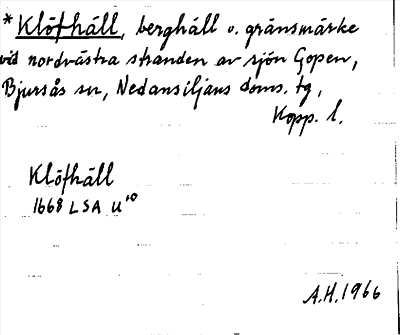 *Klöfhäll, berghäll o. gränsmärke
vid nordvästra stranden av sjön Gopen,
Bjursås sn, Nedansiljans doms. tg,
Kopp. l.
Klöfhäll
1668 LSA U¹⁰
A.H. 1966